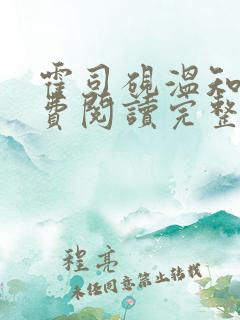 霍司砚温知
费阅讀完整
程亮
未经同意禁止转载